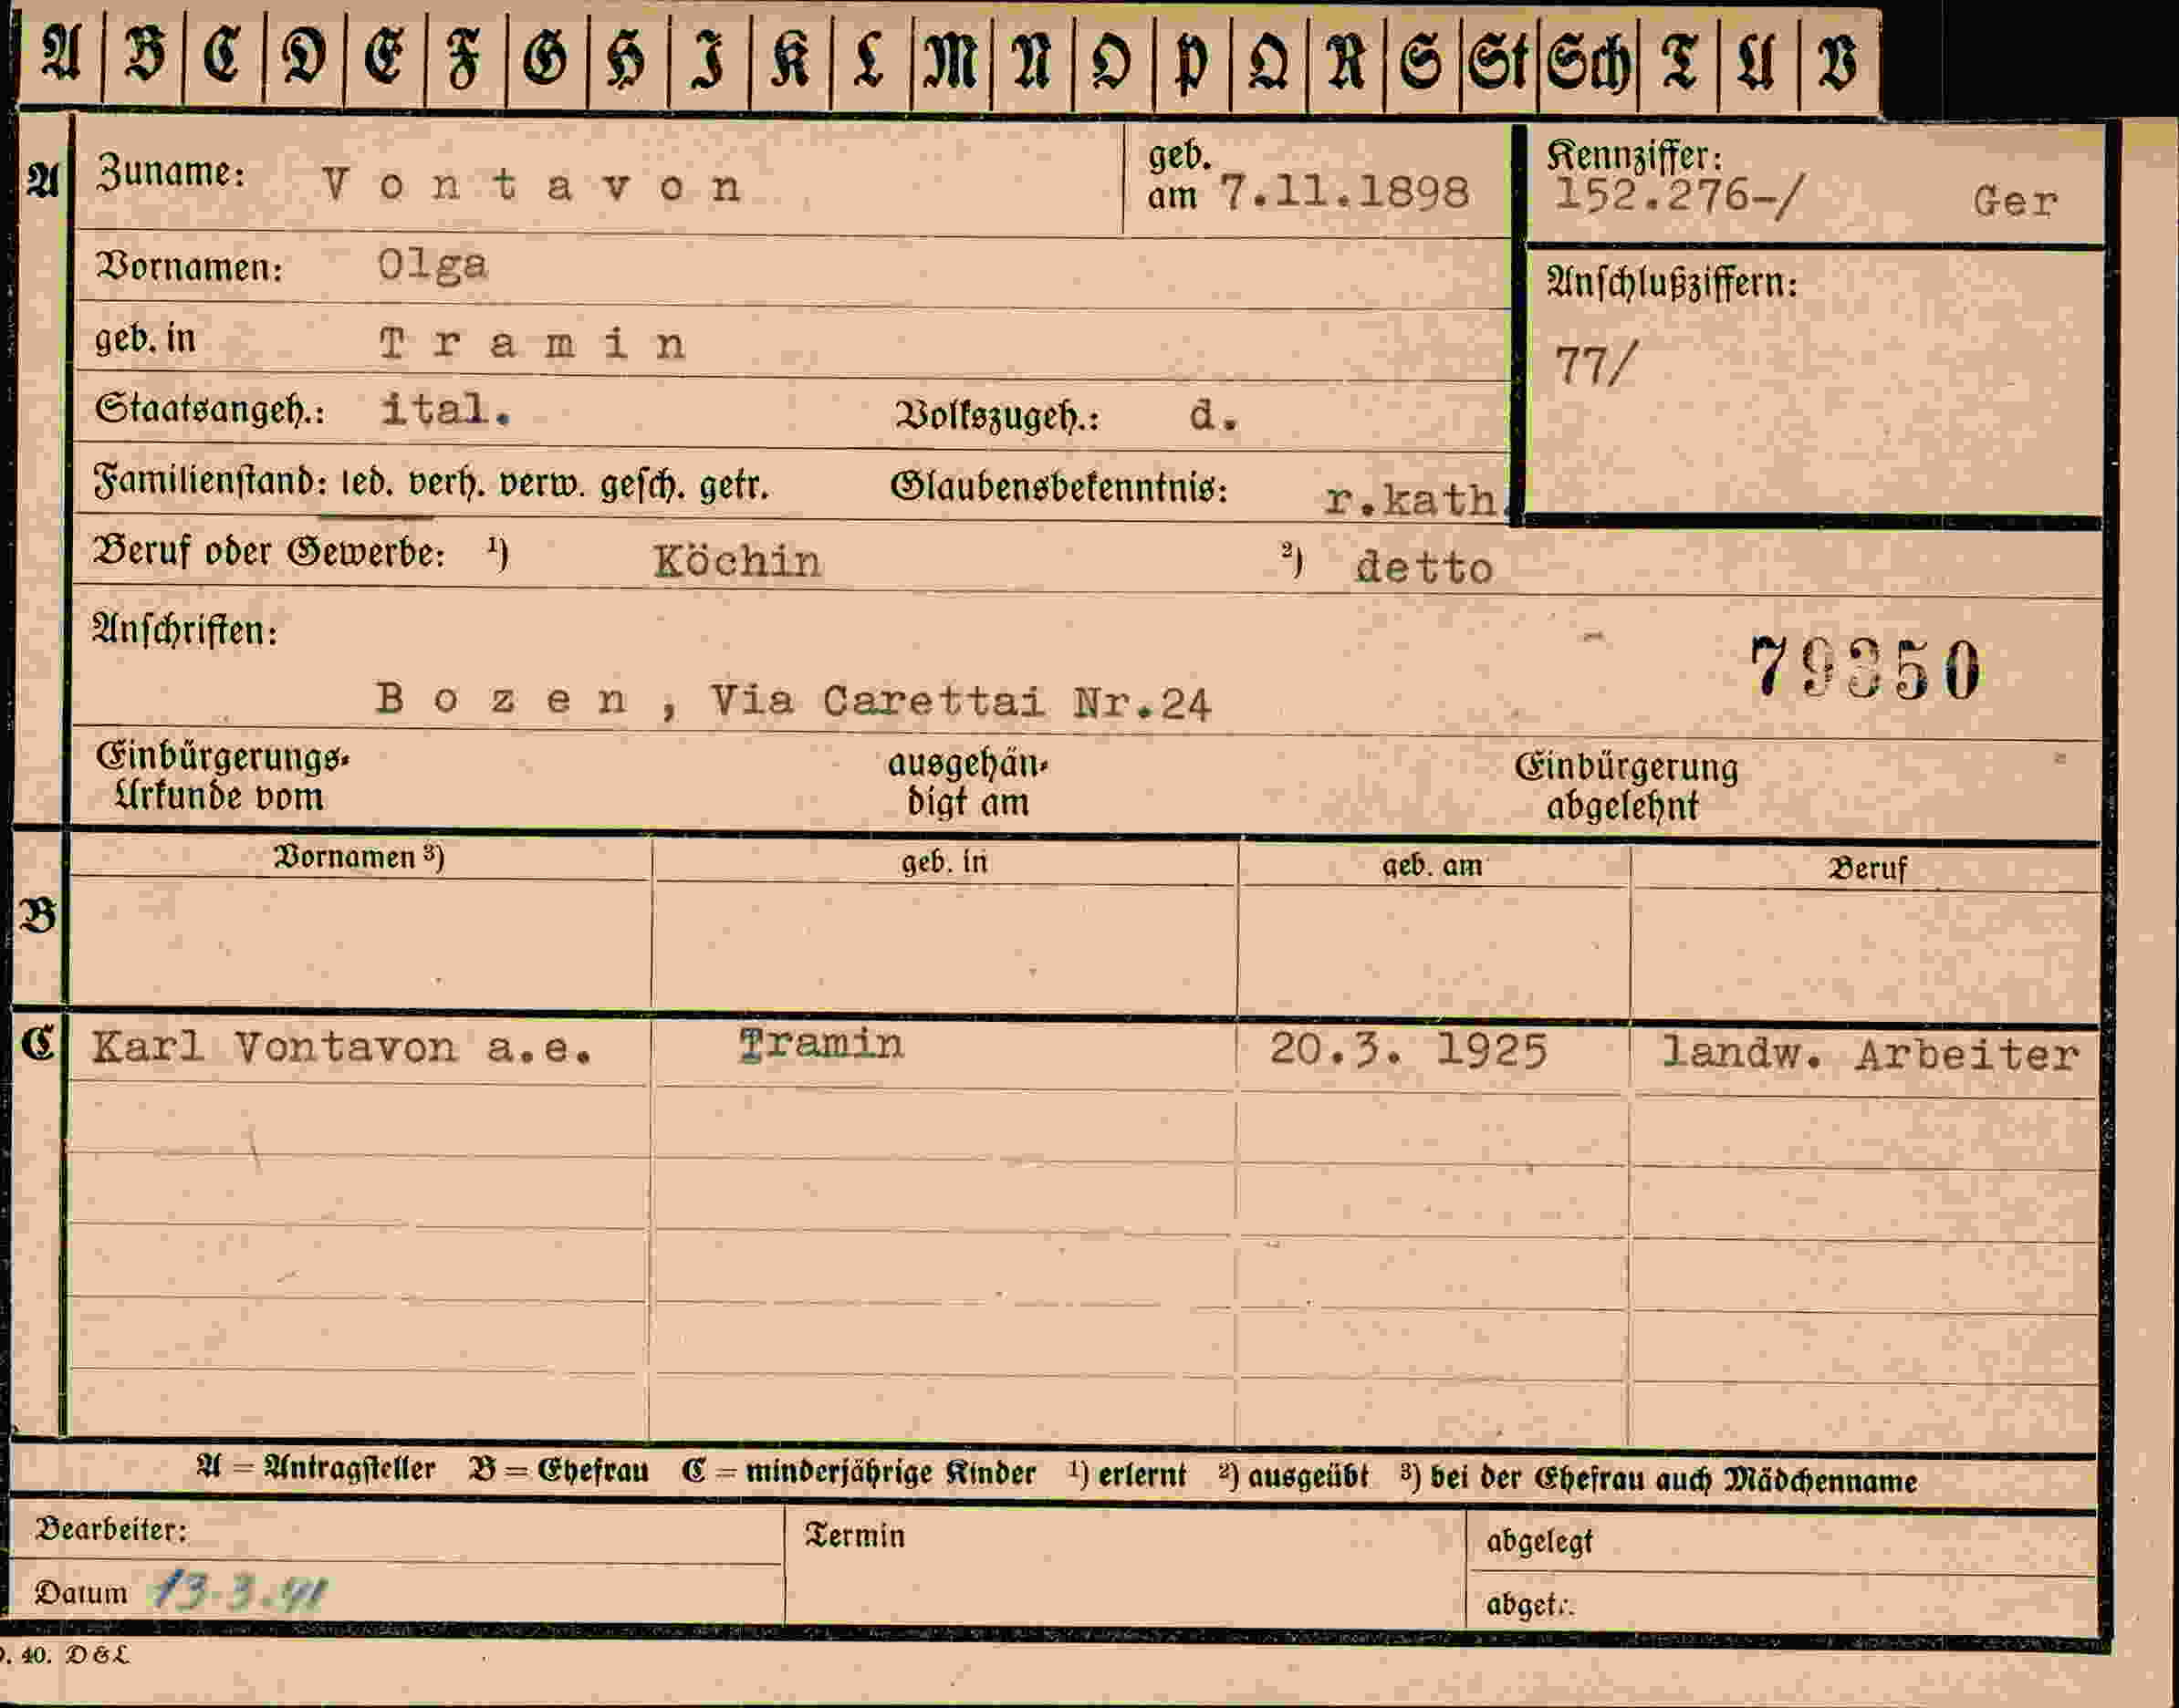 A B C D E F G H I K L M N O P Q R S St Sch T U V
A Zuname: Vontavon geb. am 7.11.1898 Kennziffer: 152.276-/ Ger
Vornamen: Olga
Anschlußziffern:
geb. in Tramin
77/
Staatsangeh.: ital. Volkszugeh.: d.
Familienstand: led. verh. verw. gesch. getr. Glaubensbekenntnis: r.kath.
Beruf oder Gewerbe: ¹) Köchin ²) detto
Anschriften:
79350
Bozen, Via Carettai Nr.24
Einbürgerungs- ausgehän- Einbürgerung
Urkunde vom digt am abgelehnt
Vornamen ³) geb. in geb. am Beruf
B
C Karl Vontavon a.e. Tramin 20.3. 1925 landw. Arbeiter
A = Antragsteller B = Ehefrau C = minderjährige Kinder ¹) erlernt ²) ausgeübt ³) bei der Ehefrau auch Mädchenname
Bearbeiter: Termin abgelegt
Datum 13.3.41 abgetr.
. 40. D & L